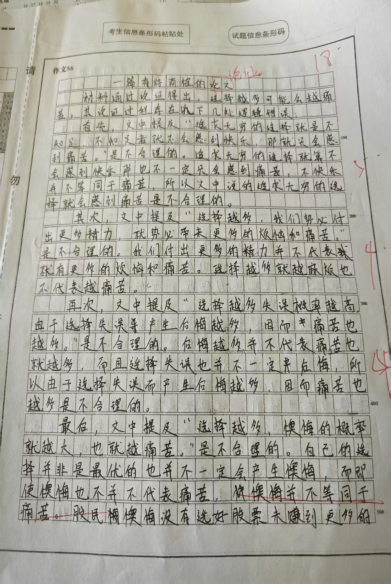 考生信息条形码粘贴处
试题信息条形码
18
请
作文56
一篇有待商榷的论文
材料通过论证得出，选择越多可能会越痛
苦，其论证过程存在以下几处逻辑错误：
首先，文中提及“追求无穷的选择就是不
知足，不知足者就不会感到快乐，那就只会感
到痛苦。”是不合理的。追求无穷的选择就算不
会感到快乐那也不一定只会感到痛苦，不快乐
并不等同于痛苦，所以文中说的追求无穷的选
择就会感到痛苦是不合理的。
勿
其次，文中提及“选择越多，我们势必付
出更多精力，就势必带来更多的烦恼和痛苦”
是不合理的。我们付出更多的精力并不代表我
就有更多的烦恼和痛苦。选择越多就越麻烦也
4
不代表越痛苦。
再次，文中提及“选择越多失误概率越高
由于选择失误导产生后悔越多，因而 痛苦也
越多。”是不合理的。后悔越多并不代表痛苦也
就越多，而且选择失误也并不一定会后悔，所
以由于选择失误而产生后悔越多，因而痛苦也
越多是不合理的。
最后，文中提及“选择越多，懊悔的概率
就越大，也就越痛苦。”是不合理的。自己的选
择并非是最优的也并不一定会产生懊悔，而即
使懊悔也不并不代表痛苦，懊悔并不等同于
痛苦。股民懊悔没有选好股票未赚到更多的